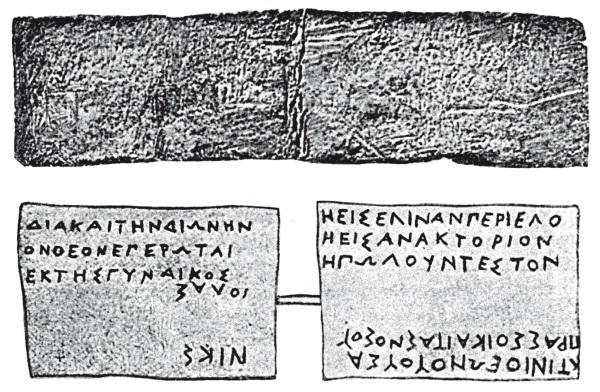 ΔΙΑΚΑΙΤΗΝΔΙΩΝΗΝ
ΟΝΘΕΟΝΕΓΕΡΩΤΑΙ
ΕΚΤΗΣΓΥΝΑΙΚΟΣ
ΙΟΛΑΣ
ΝΙΚΣ
ΗΕΙΣΕΛΙΝΑΝΓΕΡΙΕΛΟ
ΗΕΙΣΑΝΑΚΤΟΡΙΟΝ
ΗΓΩΛΟΥΝΤΕΣΤΟΝ
ΚΤΙΝΙΘΕΩΝΘΥΟΥΣΑ
ΠΡΑΣΣΟΙΚΑΙΤΑΣΝΟΣΟΥ